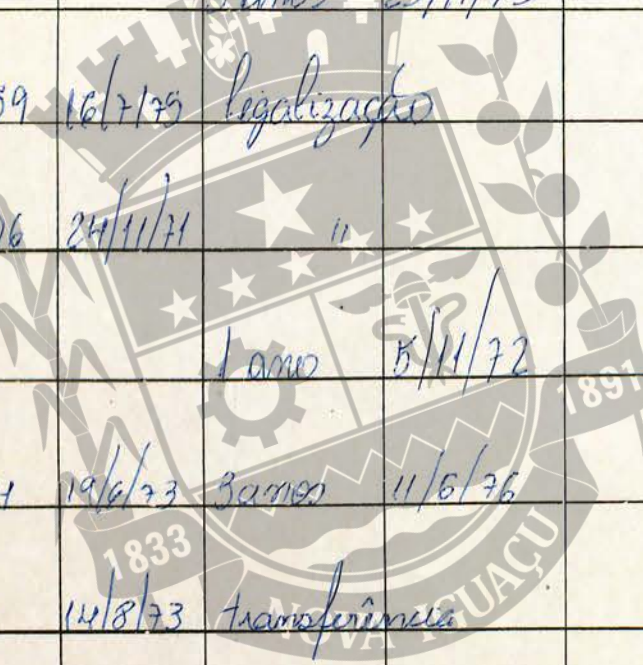 59 16/7/75 legalização
24/11/71 "
1 ano 5/11/72
19/6/73 3 anos 11/6/76
14/8/73 transferência
1833
1891
NOVA IGUAÇU